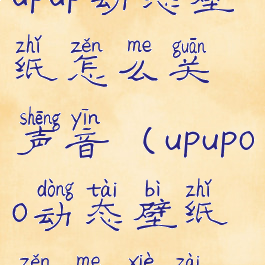 upup动态壁
zhǐ zěn me guān
纸怎么关
shēng yīn
声音（upupo
dòng tài bì zhǐ
o动态壁纸
zěn me xiè zài